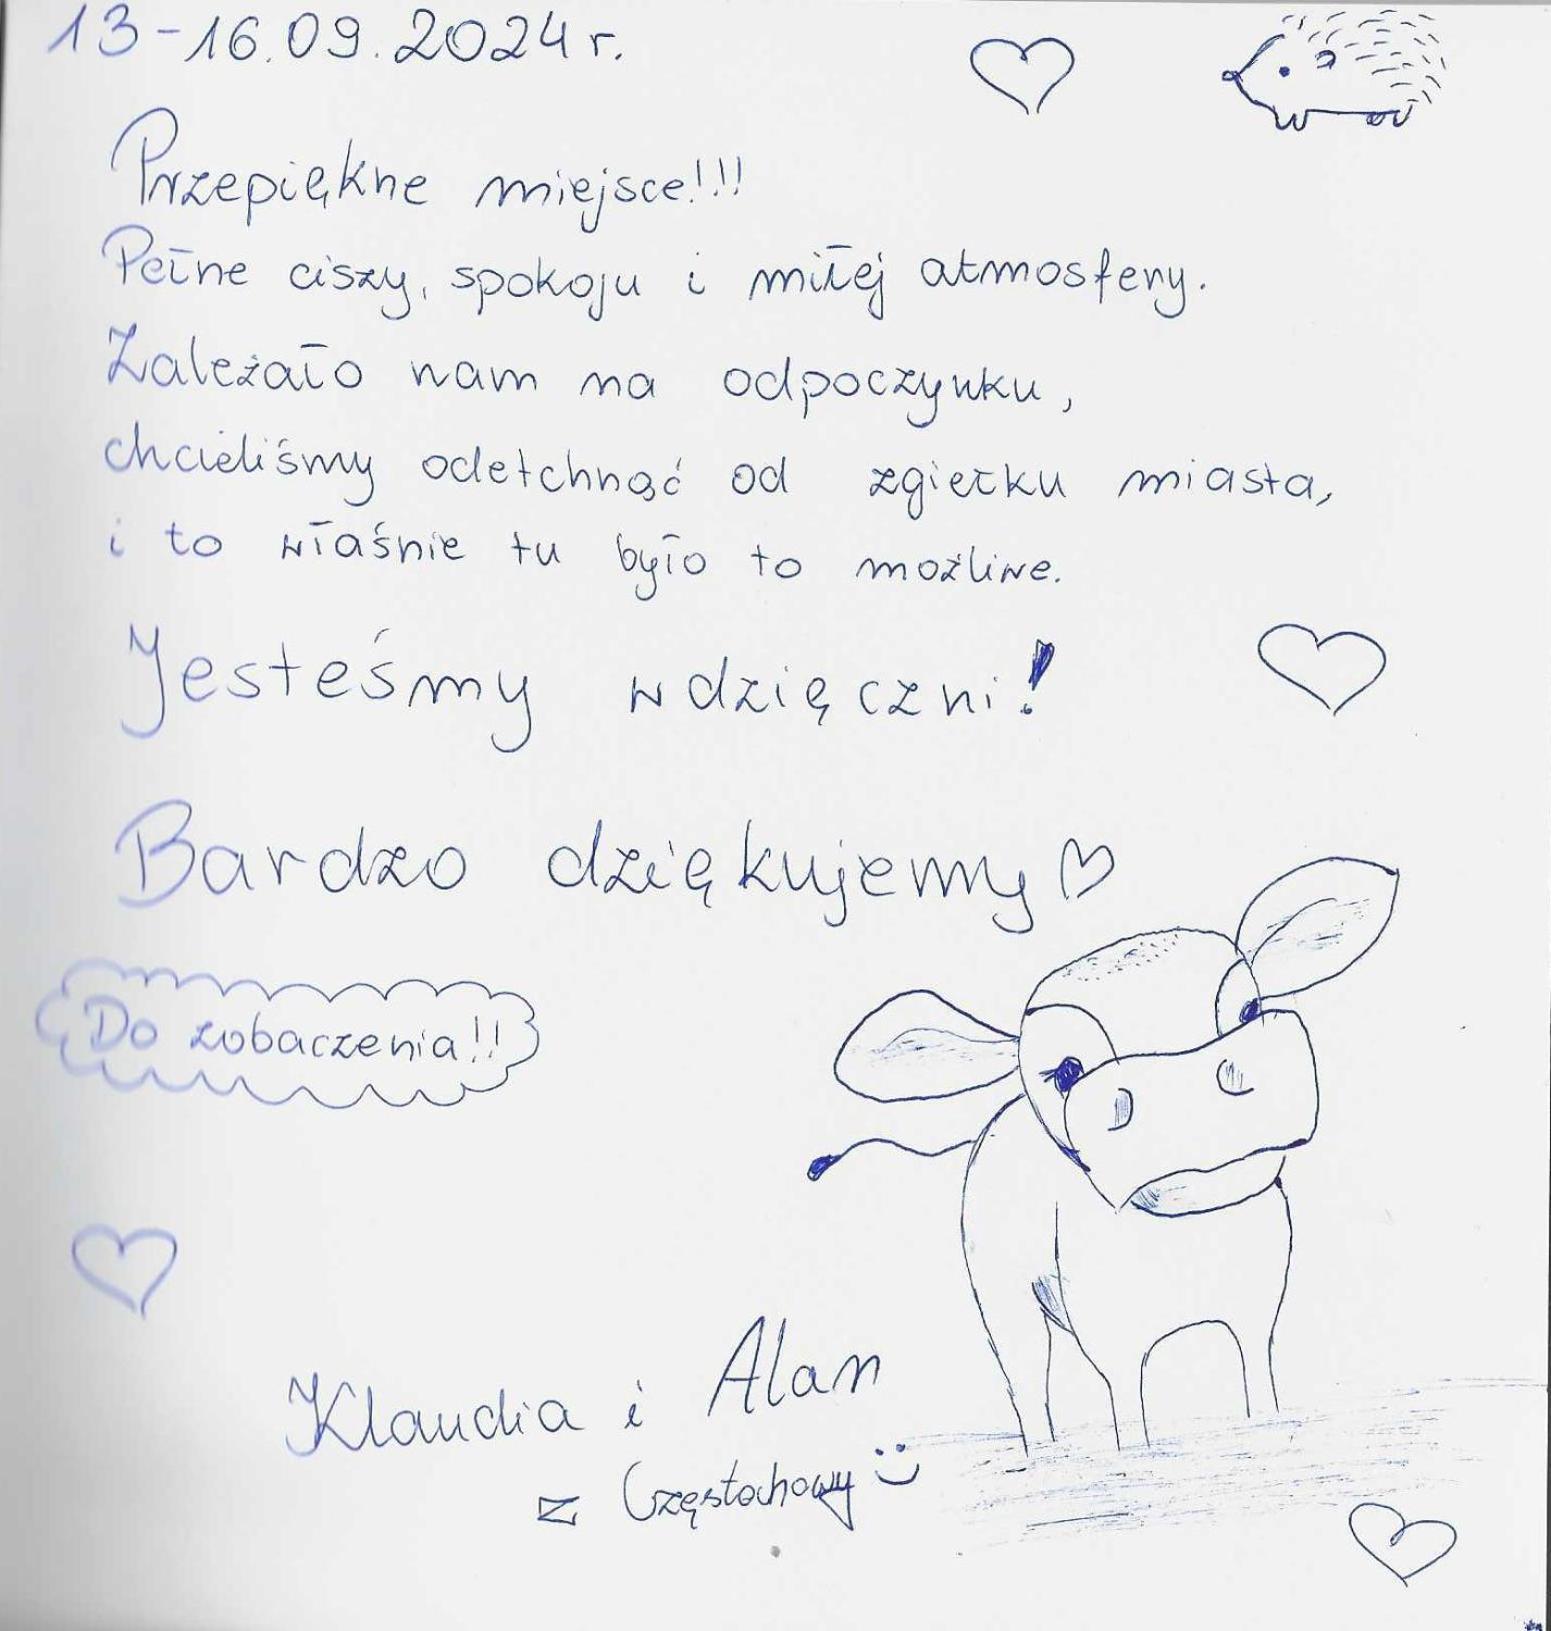 13-16.09.2024 r.
Przepiękne miejsce!!!
Pełne ciszy, spokoju i miłej atmosfery.
Zależało nam na odpoczynku,
chcieliśmy odetchnąć od zgiełku miasta,
i to właśnie tu było to możliwe.
Jesteśmy wdzięczni!
Bardzo dziękujemy
Do zobaczenia!!
Klaudia i Alan
z Częstochowy